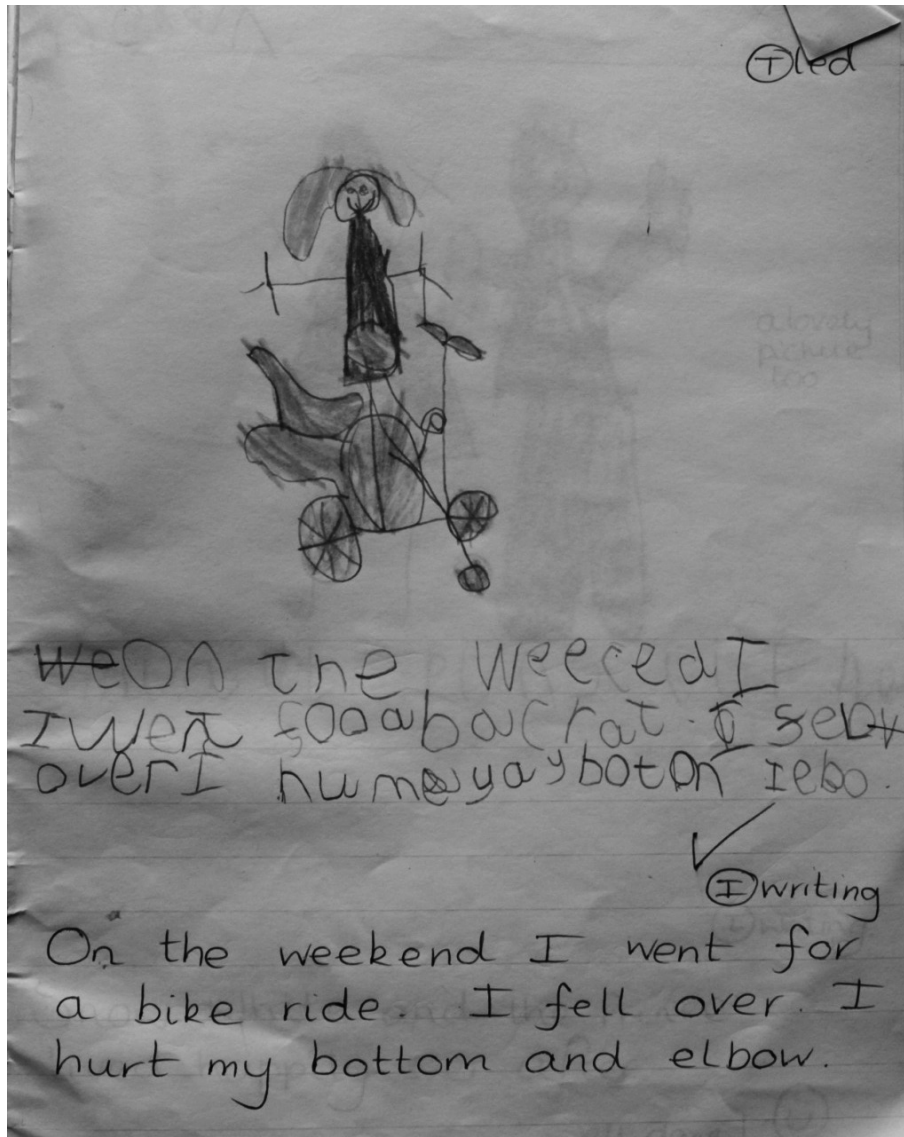 Ⓣled
a lovely
picture
too
We On the weeced I
I went fooabacrat. I
over I hurmeyay boton Iebo.
Ⓘwriting
On the weekend I went for
a bike ride. I fell over. I
hurt my bottom and elbow.